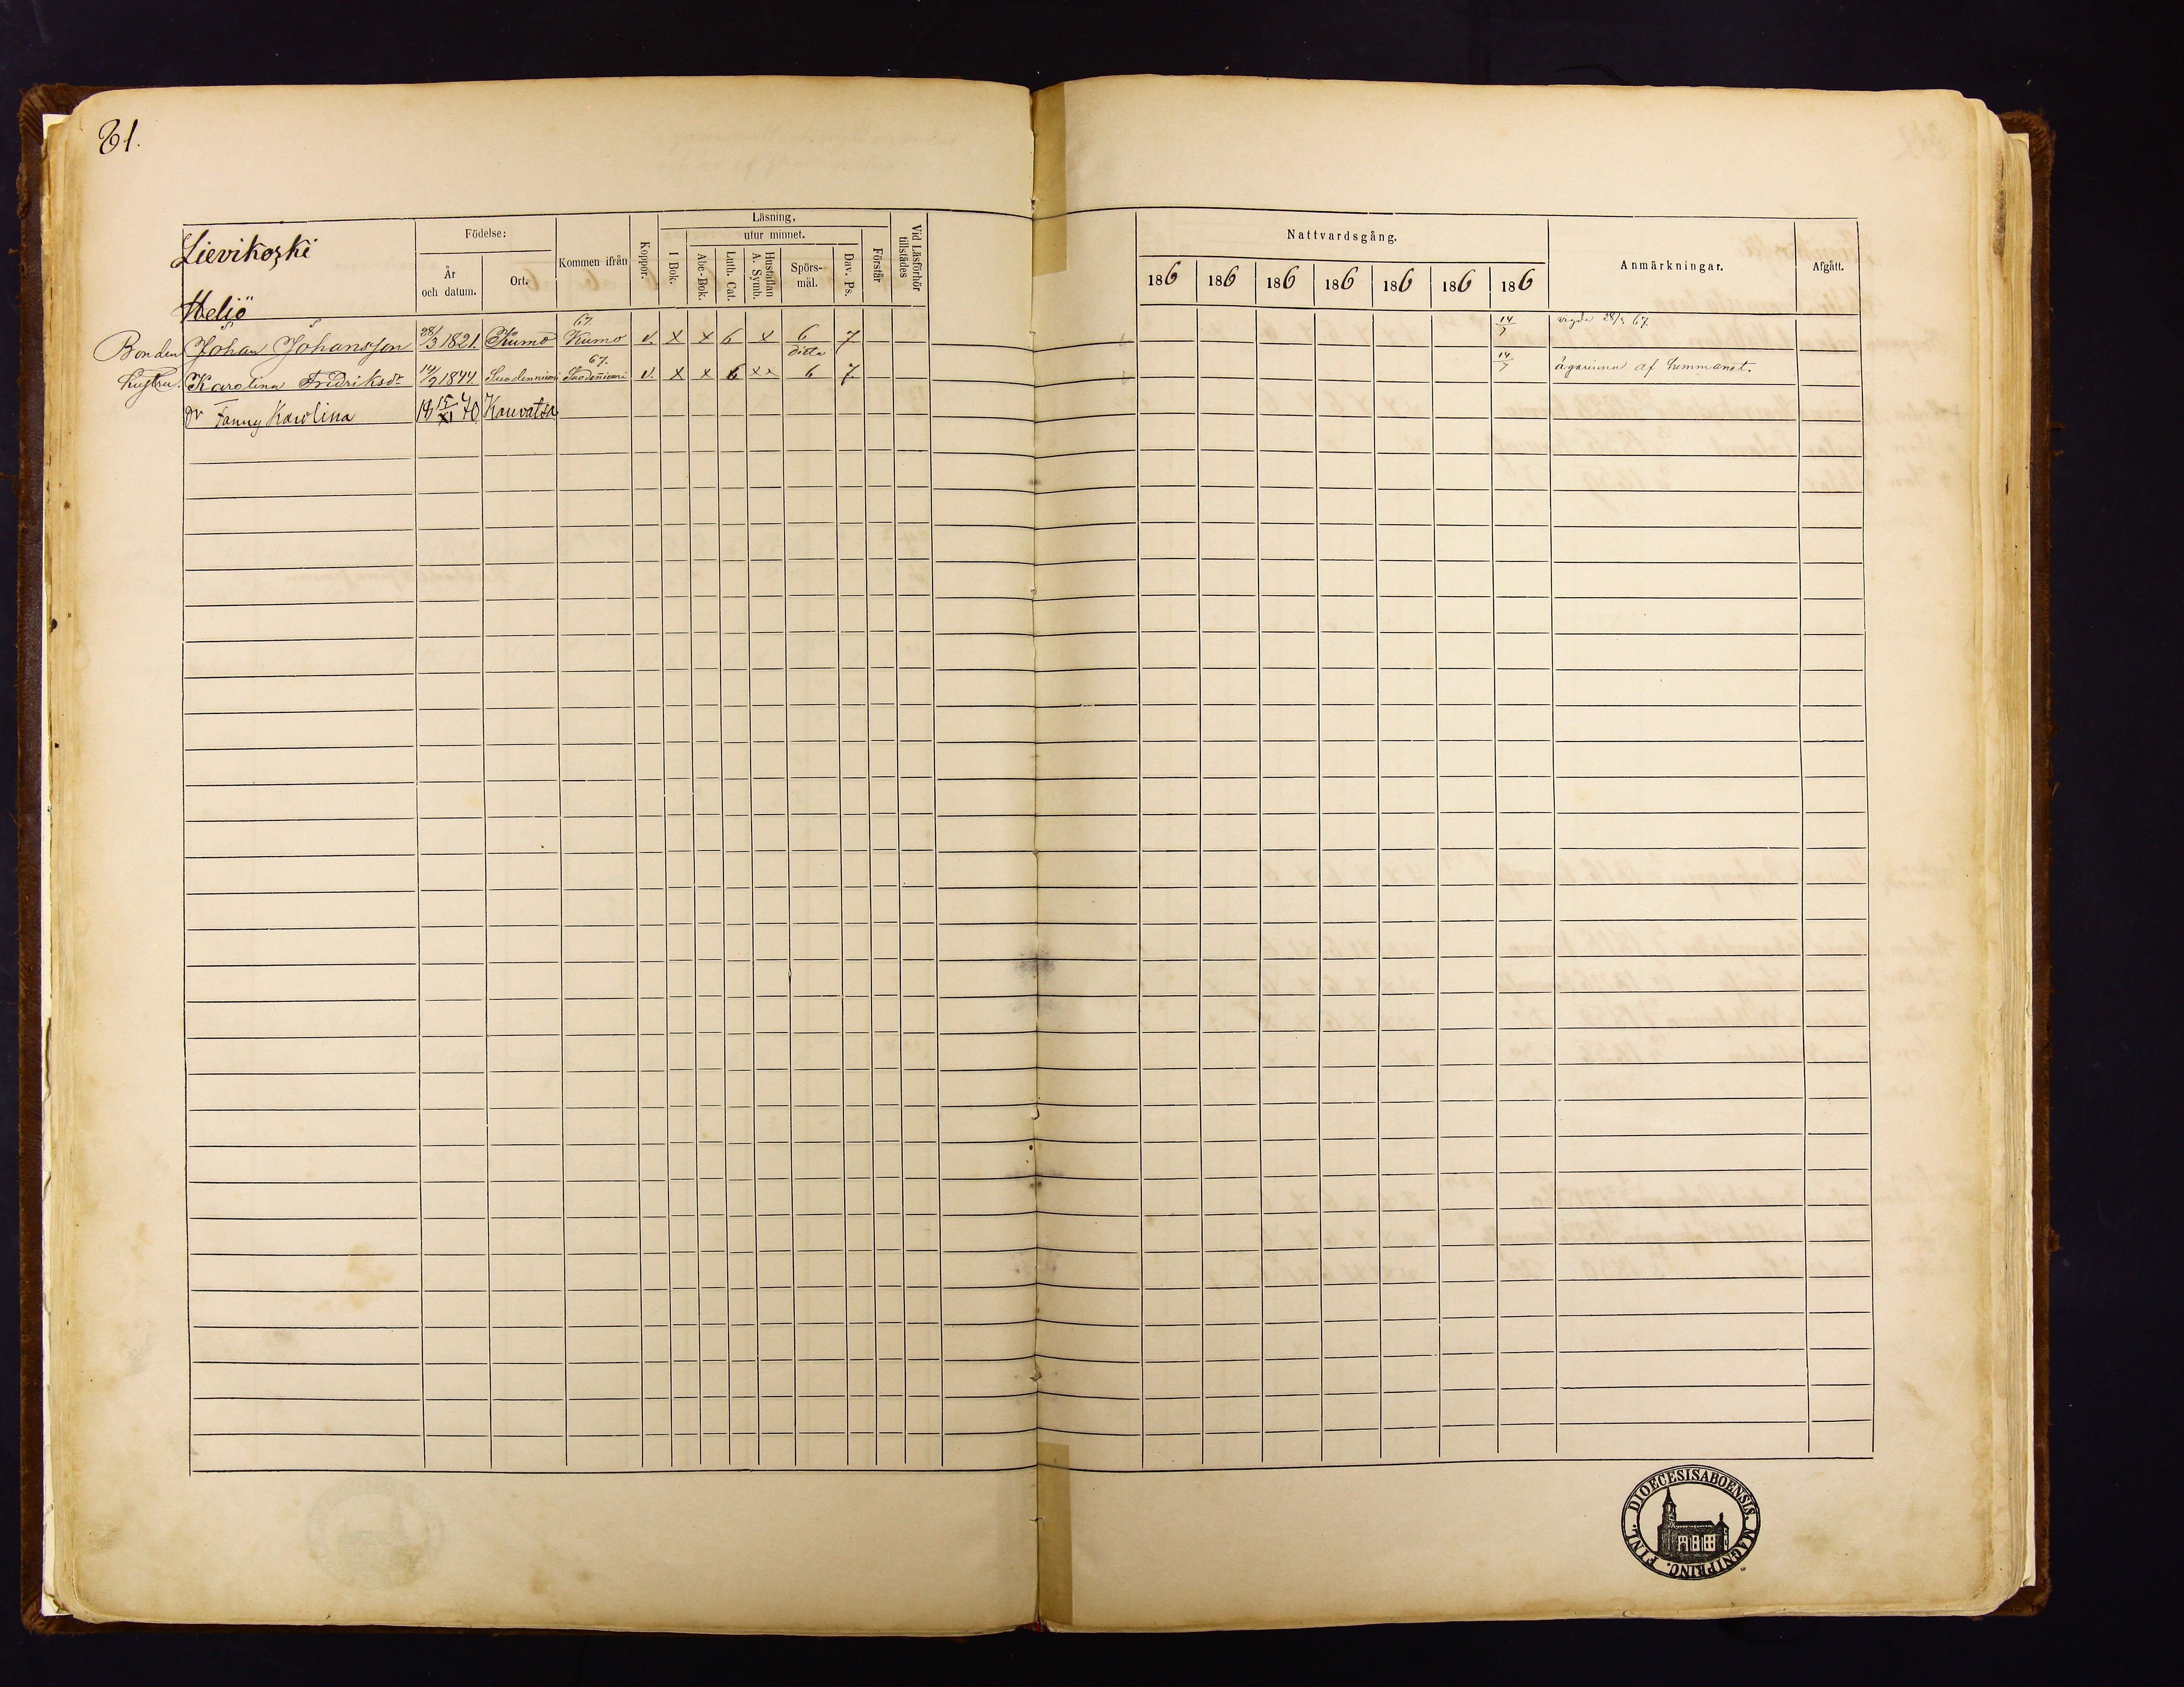 81.
Lievikoski
Heliö
Födelse:
År och datum.
Ort.
Kommen ifrån
Koppor.
Läsning,
I Bok.
utur minnet.
Abc-Bok.
Luth. Cat.
Hustaflan A. Symb.
Spörs-mål.
Dav. Ps.
Förstår
Vid Läsförhör tillstädes
Nattvardsgång.
186 186 186 186 186 186 186
Anmärkningar.
Afgått.
Bonden Johan Johansson 28/3 1821. Kumo 67. Kumo v. x x 6 x 6 7 14/7 vigde 67.
dicta
hustru. Karolina Fredriksdr 14/9 1844 Suodenniemi 67. Suodeniemi v. x x 6 xx 6 7 14/7 ägarinna af hemmanet.
Dr Fanny Karolina 15/XI 70 Kauvatsa
DIOECESIS ABOENSIS. MAGNI PRINC. FINL.